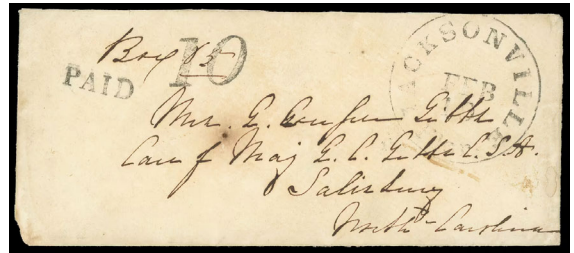 Box 85
PAID
10
JACKSONVILLE
FEB
Mrs. G. Couper Gibbs
Care of Maj G. C. Gibbs C.S.A.
Salisbury
North Carolina